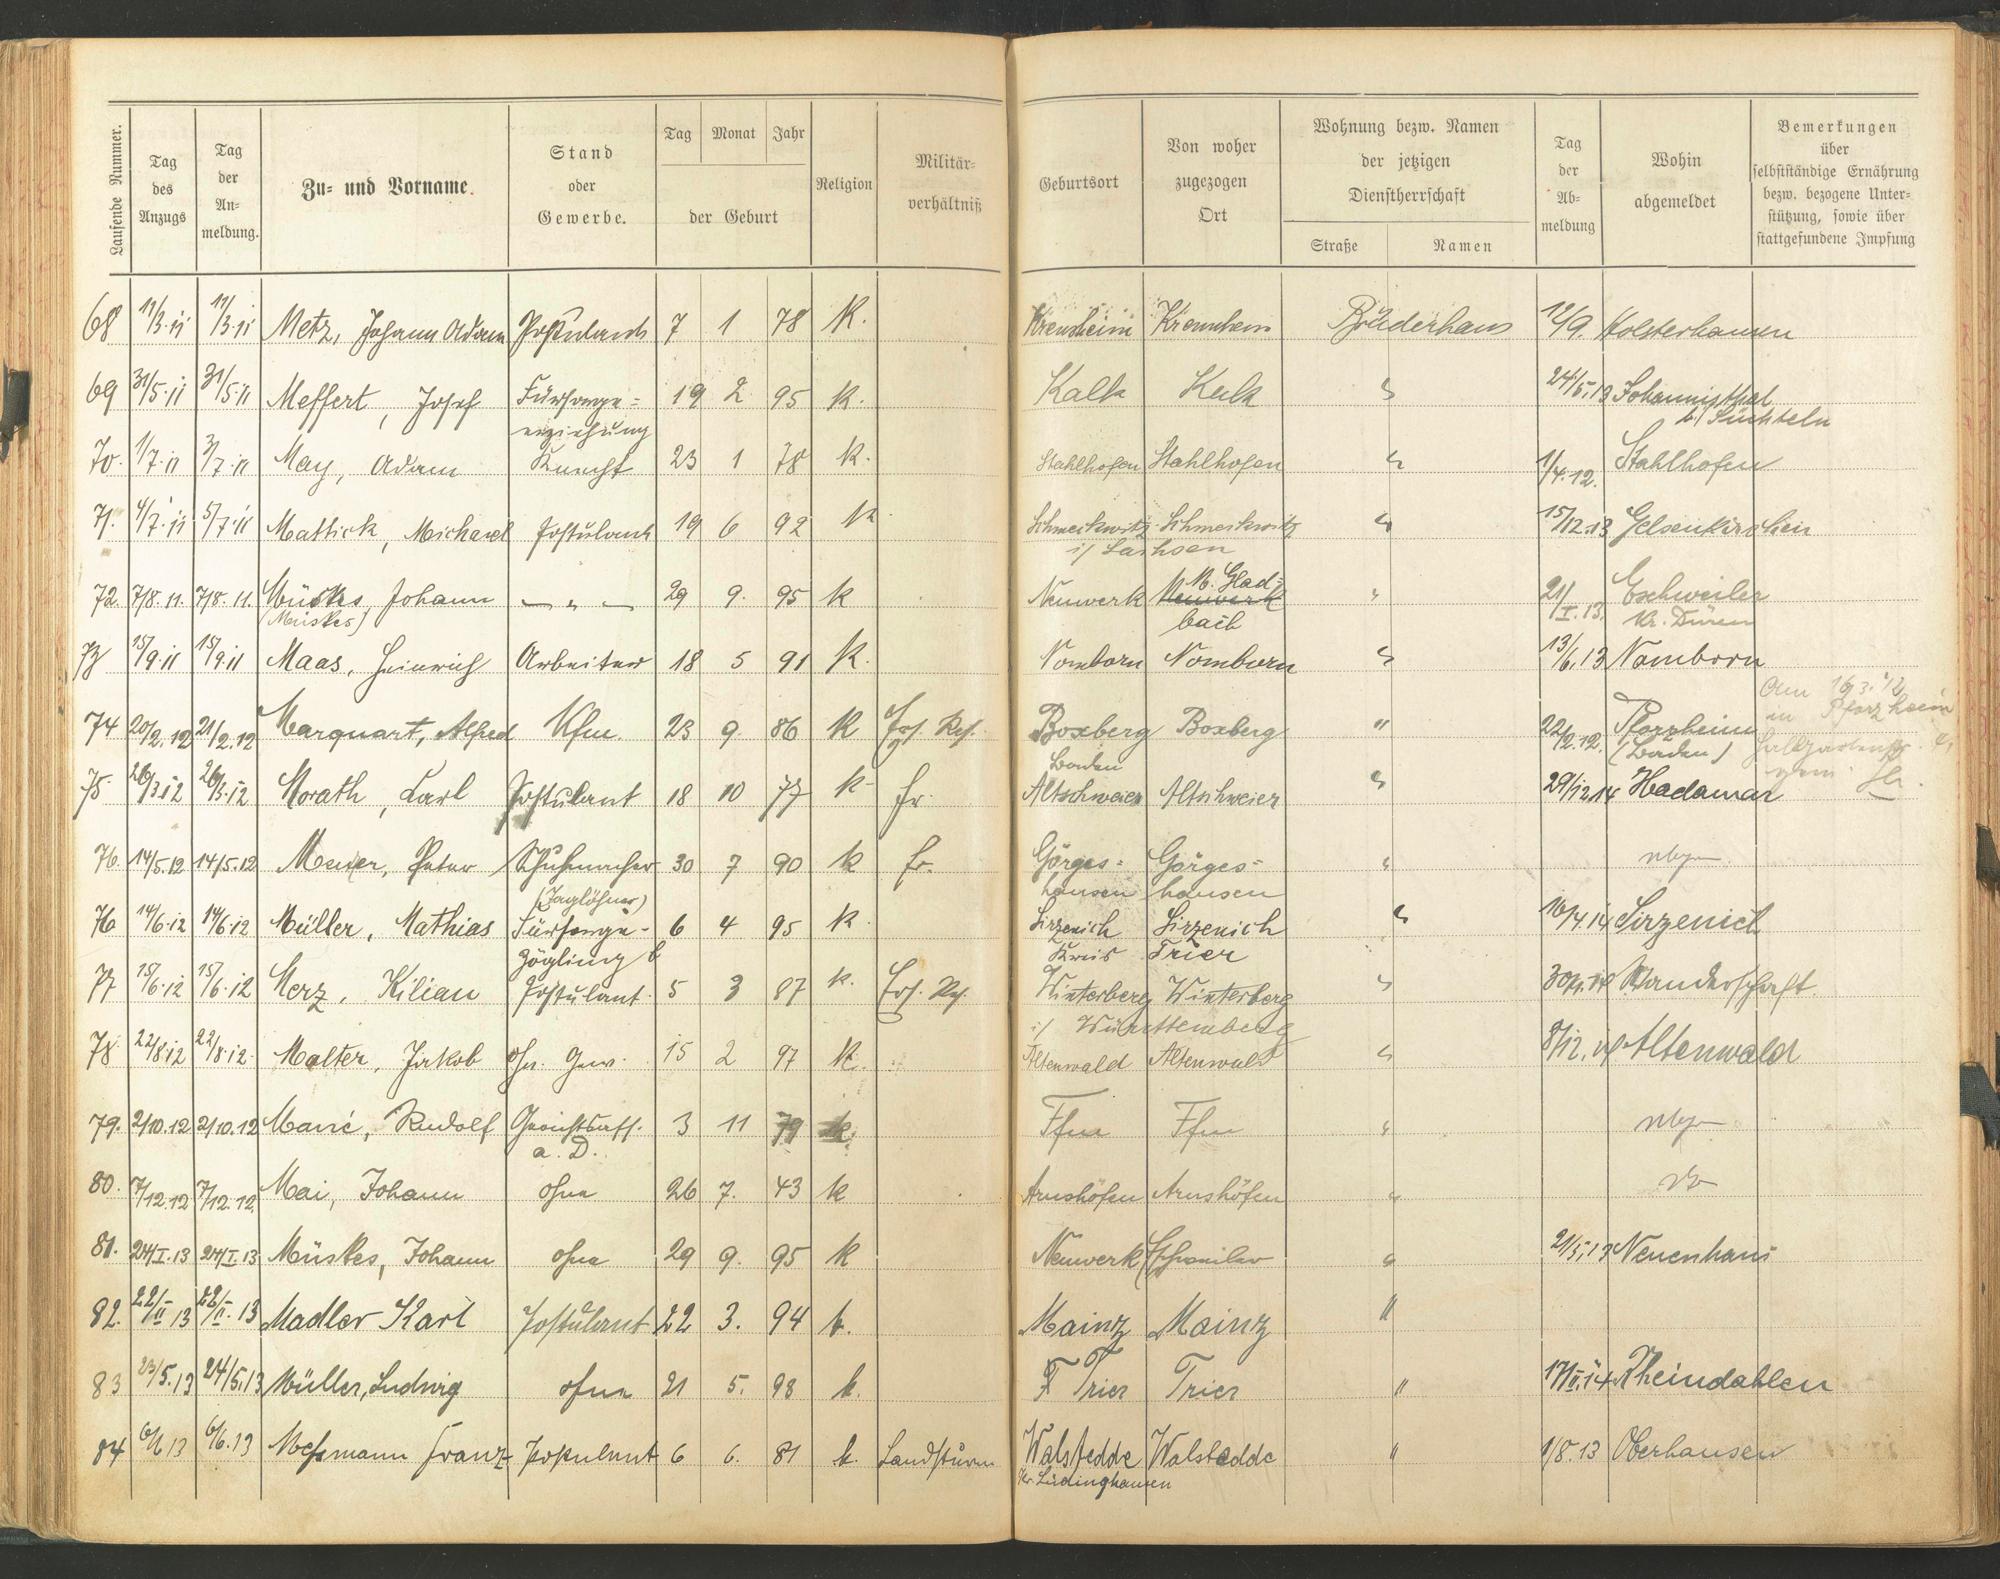 Laufende Nummer. Tag des Anzugs Tag der Anmeldung. Zu- und Vorname. Stand oder Gewerbe. Tag Monat Jahr der Geburt Religion Militärverhältniß Geburtsort Von woher zugezogen Ort Wohnung bezw. Namen der jetzigen Dienstherrschaft Straße Namen Tag der Abmeldung Wohin abgemeldet Bemerkungen über selbstständige Ernährung bezw. bezogene Unterstützung, sowie über stattgefundene Impfung
68 11/3.11 11/3.11 Metz, Johann Adam Postulant 7 1 78 K. Krensheim Krensheim Brüderhaus 12/9. Holsterhausen
69 31/5.11 31/5.11 Meffert, Josef Fürsorge= 19 2 95 K. Kalk Kalk " 24/5.13 Johannisthal
erziehung b/ Süchteln
70. 1/7.11 3/7.11 May, Adam Knecht 23 1 78 K. Stahlhofen Stahlhofen " 1/4.12. Stahlhofen
71. 4/7.11 5/7.11 Mattick, Michael Postulant 19 6 92 K Schmeckwitz Schmeckwitz " 15/12.13 Gelsenkirchen
i/ Sachsen
72. 7/8.11. 7/8.11. Müskes, Johann — " — 29 9. 95 K Neuwerk M. Glad= " 21/I.13. Eschweiler
(Müskes) bach Kr. Düren
73 15/9.11 15/9.11 Maas, Heinrich Arbeiter 18 5 91 K. Nomborn Nomborn " 13/6.13 Nomborn
74 20/2.12 21/2.12 Marquart, Alfred Kfm. 23 9 86 K Ers. Res. Boxberg Boxberg " 22/2.12. Pforzheim
Baden (Baden)
Am 16/3.12
in Pforzheim
75 26/3.12 26/3.12 Morath, Karl Postulant 18 10 77 K fr. Altschweier Altschweier " 29/12.14 Hadamar
76. 14/5.12 14/5.12 Meuer, Peter Schuhmacher 30 7 90 K fr. Görges= Görges= "
(Taglöhner) hausen hausen
76 14/6.12 14/6.12 Müller, Mathias Fürsorge- 6 4 95 K. Sirzenich Sirzenich " 16/4.14 Sirzenich
Zögling Kreis Trier
77 15/6.12 15/6.12 Merz, Kilian Postulant. 5 3 87 K. Ers. Res. Winterberg Winterberg " Wanderschaft.
i/ Württemberg
78. 22/8.12 22/8.12. Malter, Jakob oh. Gew. 15 2 97 K. Altenwald Altenwald " 8/12. Altenwald
79. 2/10.12 2/10.12 Marić, Rudolf Gerichtsass. 3 11 79 K. Ffm Ffm "
a. D.
80. 7/12.12 7/12.12. Mai, Johann ohne 26 7. 43 K Arnshöfen Arnshöfen "
81. 24/I.13 24/I.13 Müskes, Johann ohne 29 9. 95 K Neuwerk Eschweiler " 21/5.13 Neuenhaus
82. 22/II.13 22/II.13 Madler Karl Postulant 22 3. 94 k. Mainz Mainz "
83 23/5.13 24/5.13 Müller, Ludwig ohne 21 5. 98 k. Trier Trier " 17/II.14 Rheindahlen
84 6/6.13 6/6.13 Meßmann Franz Postulant 6 6. 81 k. Landsturm Walstedde Walstedde " 1/8.13 Oberhausen
Kr. Lüdinghausen